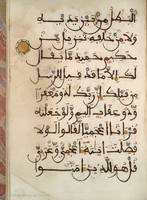 البطل من بين يديه
ولا من خلفه تنزيل من
حكيم حميد ما يقال
لك الا ما قد قيل للرسل
من قبلك ان ربك لذو مغفرة
وذو عقاب اليم ولو جعلنه
قرانا اعجميا لقالوا لولا
فصلت ايته اعجمي وعربي
قل هو للذين امنوا